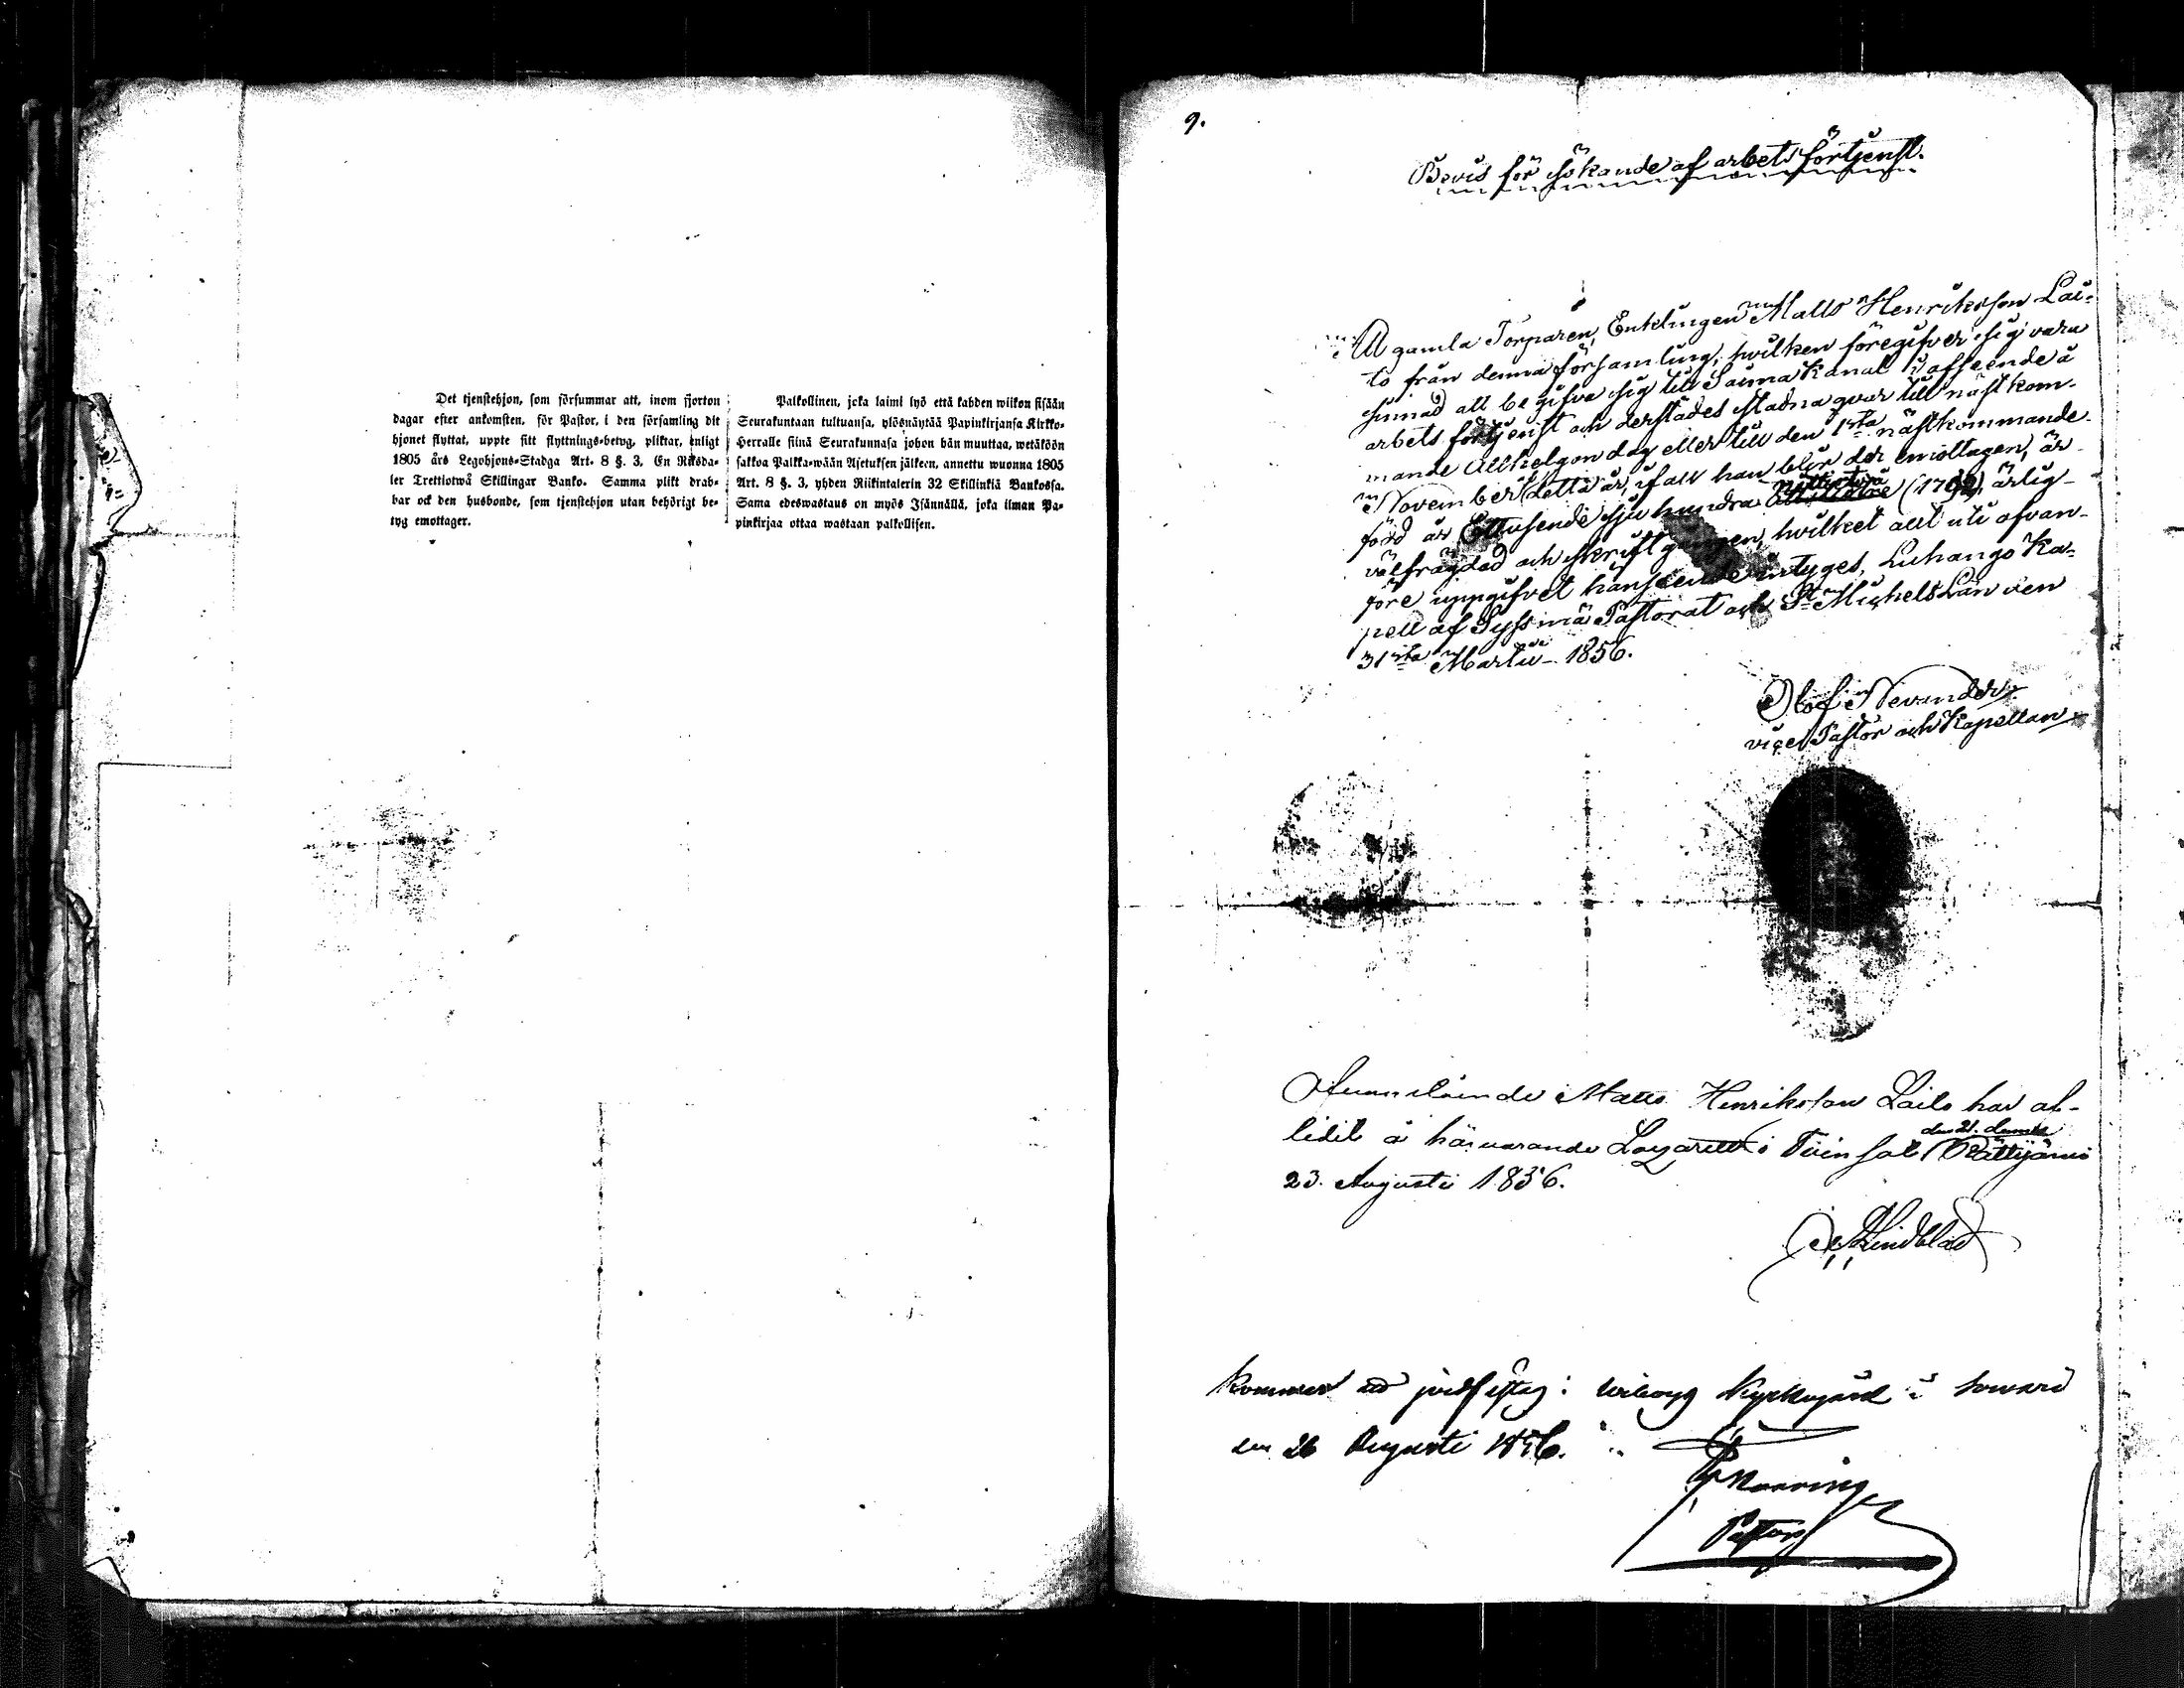 Det tjenstehjon, som försummar att, inom fjorton
dagar efter ankomsten, för Pastor, i den församling dit
hjonet flyttat, uppte sitt flyttnings-betyg, pliktar, enligt
1805 års Legohjons-Stadga Art. 8 §. 3, En Riksda-
ler Trettiotwå Skillingar Banko. Samma plikt drab-
bar ock den husbonde, som tjenstehjon utan behörigt be-
tyg emottager.
Palkollinen, joka laimi lyö että kahden wiikon sisään
Seurakuntaan tultuansa, ylösnäytää Papinkirjansa Kirkko-
Herralle siinä Seurakunnasa johon hän muuttaa, wetäköön
sakkoa Palkka-wään Asetuksen jälkeen, annettu wuonna 1805
Art. 8 §. 3, yhden Riikintalerin 32 Skillinkiä Bankossa.
Sama edeswastaus on myös Isännällä, joka ilman Pa-
pinkirjaa ottaa wastaan palkollisen.
9.
Bevis för sökande af arbets förtjenst.
gamla Torparen, Enklingen Matts Henriksson Lai-
to från denna församling, hvilken föregifver sig vara
sinnad att begifva sig till Saima Kanal i afseende å
arbets förtjenst och derstädes stadna qvar till näst kom-
mande Allhelgon dag eller till den 1sta nästkommande
November detta år, ifall han blir der emottagen, är
född år Ettusende sju hundra (1792), ärlig
välfrägdad och skriftgången, hvilket allt uti ofvan-
före uppgifvet hänseende intyges, Luhango Ka-
pell af Sysmä Pastorat och St Michels Län den
31sta Martii 1856.
Olof Nevander
vice Pastor och Kapellan
Matts Henriksson Laito har af-
lidit å härvarande Lazarett i
den 21. dennes
23. Augusti 1856.
Lindblad
Kommer att jordfästas i Wiborgs Kyrkogård i
den 26 Augusti 1856.
Pastor